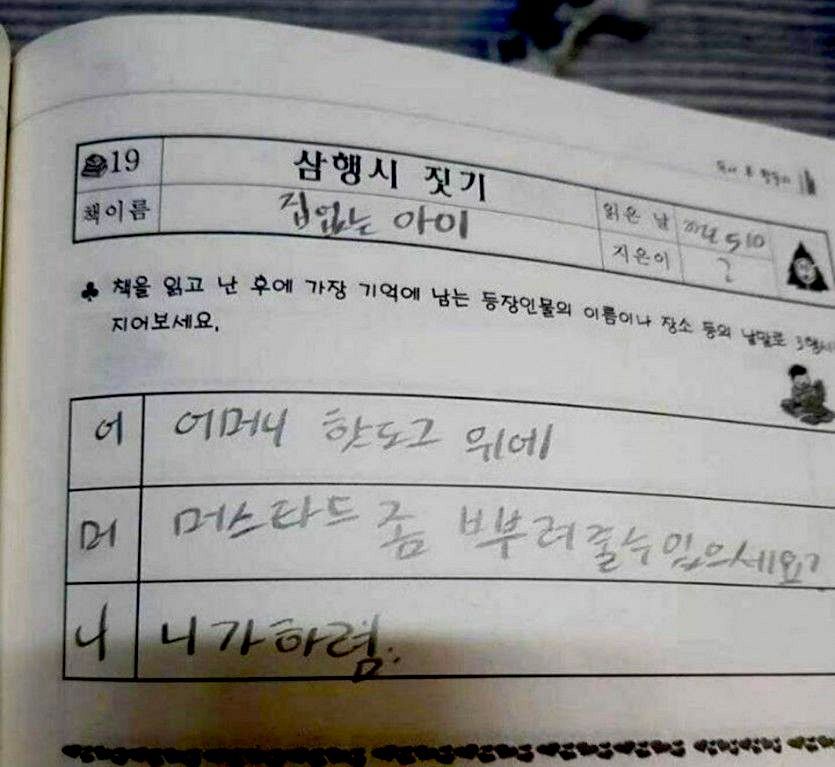 19 삼행시 짓기
책이름 집없는 아이
읽은 날 510
지은이 ?
♣ 책을 읽고 난 후에 가장 기억에 남는 등장인물의 이름이나 장소 등의 낱말로 3행시
지어보세요.
어 어머니 핫도그 위에
머 머스타드 좀 뿌려줄수있으세요?
니 니가하렴.